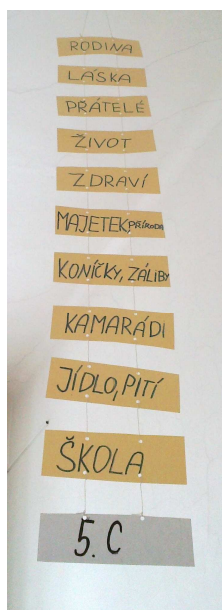 RODINA
LÁSKA
PŘÁTELÉ
ŽIVOT
ZDRAVÍ
MAJETEK PŘÍRODA
KONÍČKY, ZÁLIBY
KAMARÁDI
JÍDLO, PITÍ
ŠKOLA
5. C